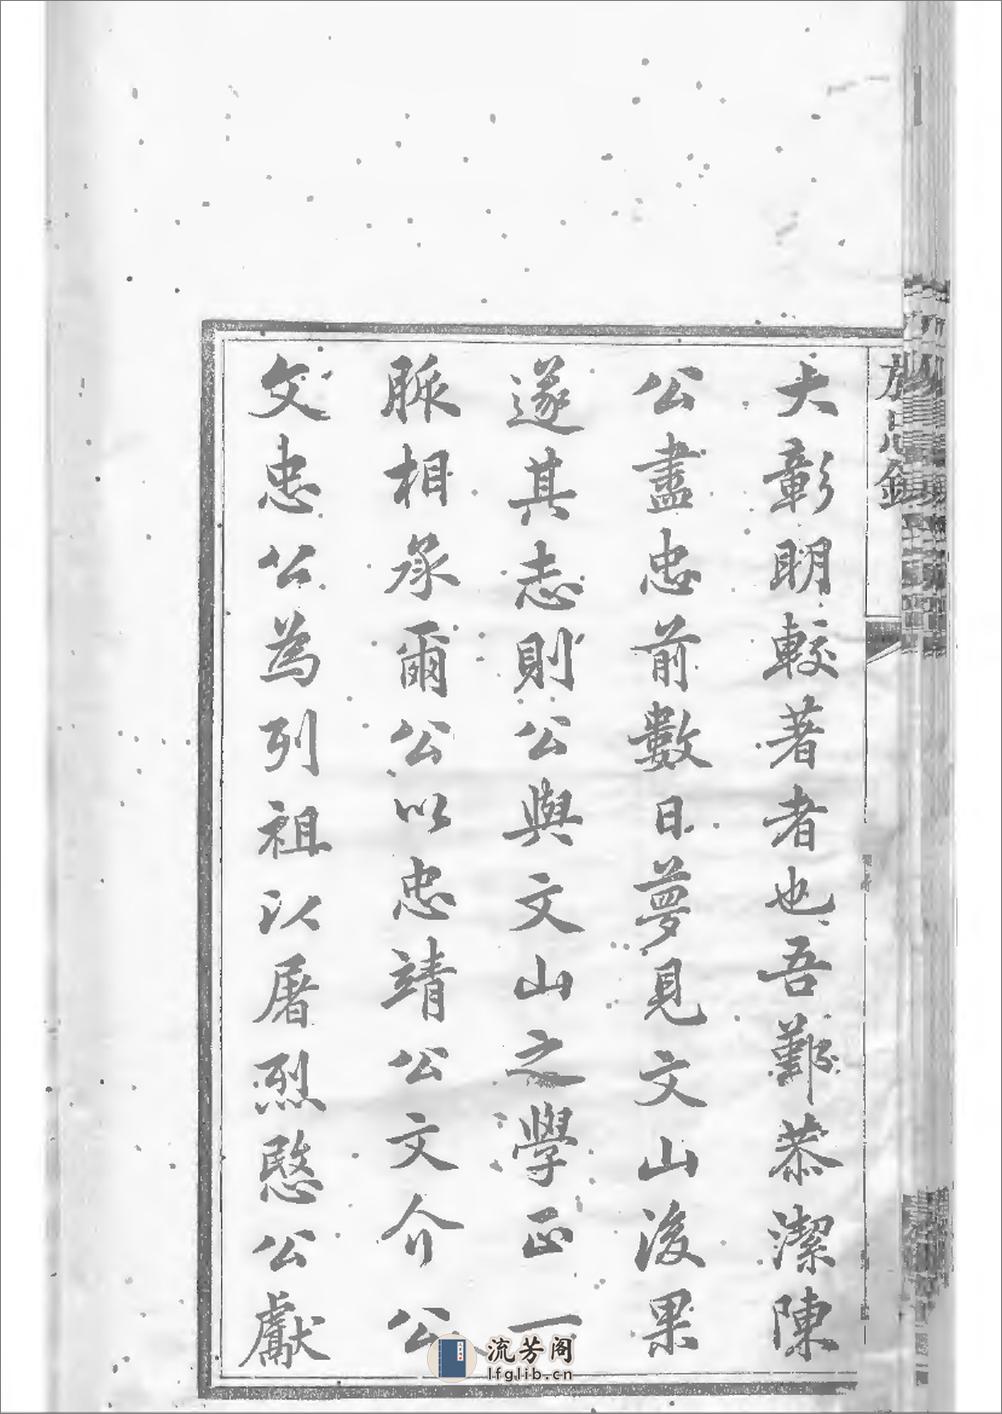 大彰明較著者也吾鄞恭潔陳
公盡忠前數日夢見文山後果
遂其志則公與文山之學正一
脈相承爾公以忠靖公文介公
文忠公為列祖以屠烈愍公獻
流芳阁
lfglib.cn